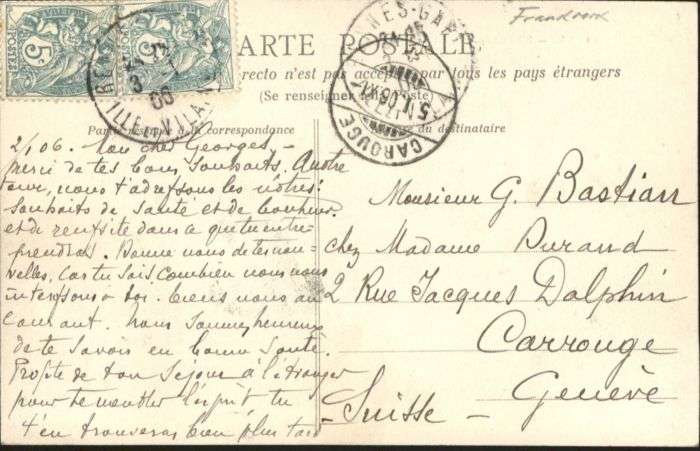 Frankreich
CARTE POSTALE
recto n'est pas accepté par tous les pays étrangers
(Se renseigner à la poste)
Partie réservée à la correspondance
du destinataire
5c
5c
RENNES
ILLE-ET-VILAINE
3
06
RENNES-GARE
CAROUGE
5 I 06 XI
2/1 06. Mon cher Georges,
merci de tes bons souhaits. A notre
tour, nous t'adressons les nôtres:
souhaits de santé et de bonheur
et de réussite dans ce que tu entre-
prendras. Donne nous de tes nou-
velles, car tu sais combien nous nous
intéressons à toi. Tiens nous au
courant. Nous sommes heureux
de te savoir en bonne santé.
Profite de ton séjour à l'étranger
pour te meubler l'esprit tu
t'en trouveras bien plus tard
Monsieur G. Bastian
chez Madame Durand
2 Rue Jacques Dalphin
Carrouge
Genève
Suisse